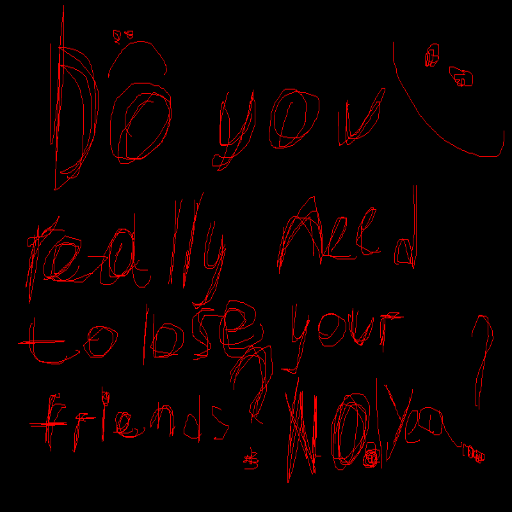 Do you
really need
to lose your
friends? NO! Yea...?